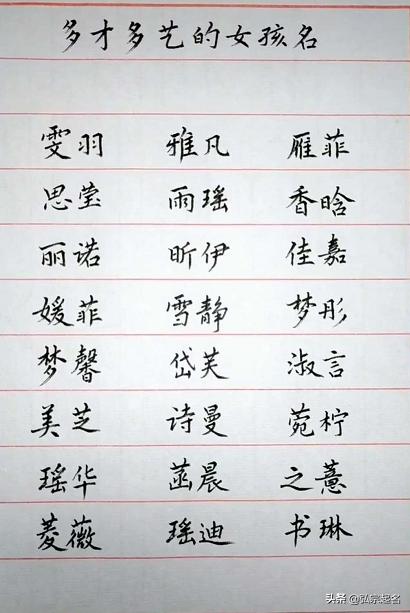 多才多艺的女孩名
雯羽 雅凡 雁菲
思莹 雨瑶 香晗
丽诺 昕伊 佳嘉
媛菲 雪静 梦彤
梦馨 岱芙 淑言
美芝 诗曼 菀柠
瑶华 菡晨 之薏
菱薇 瑶迪 书琳
头条 @弘宗起名